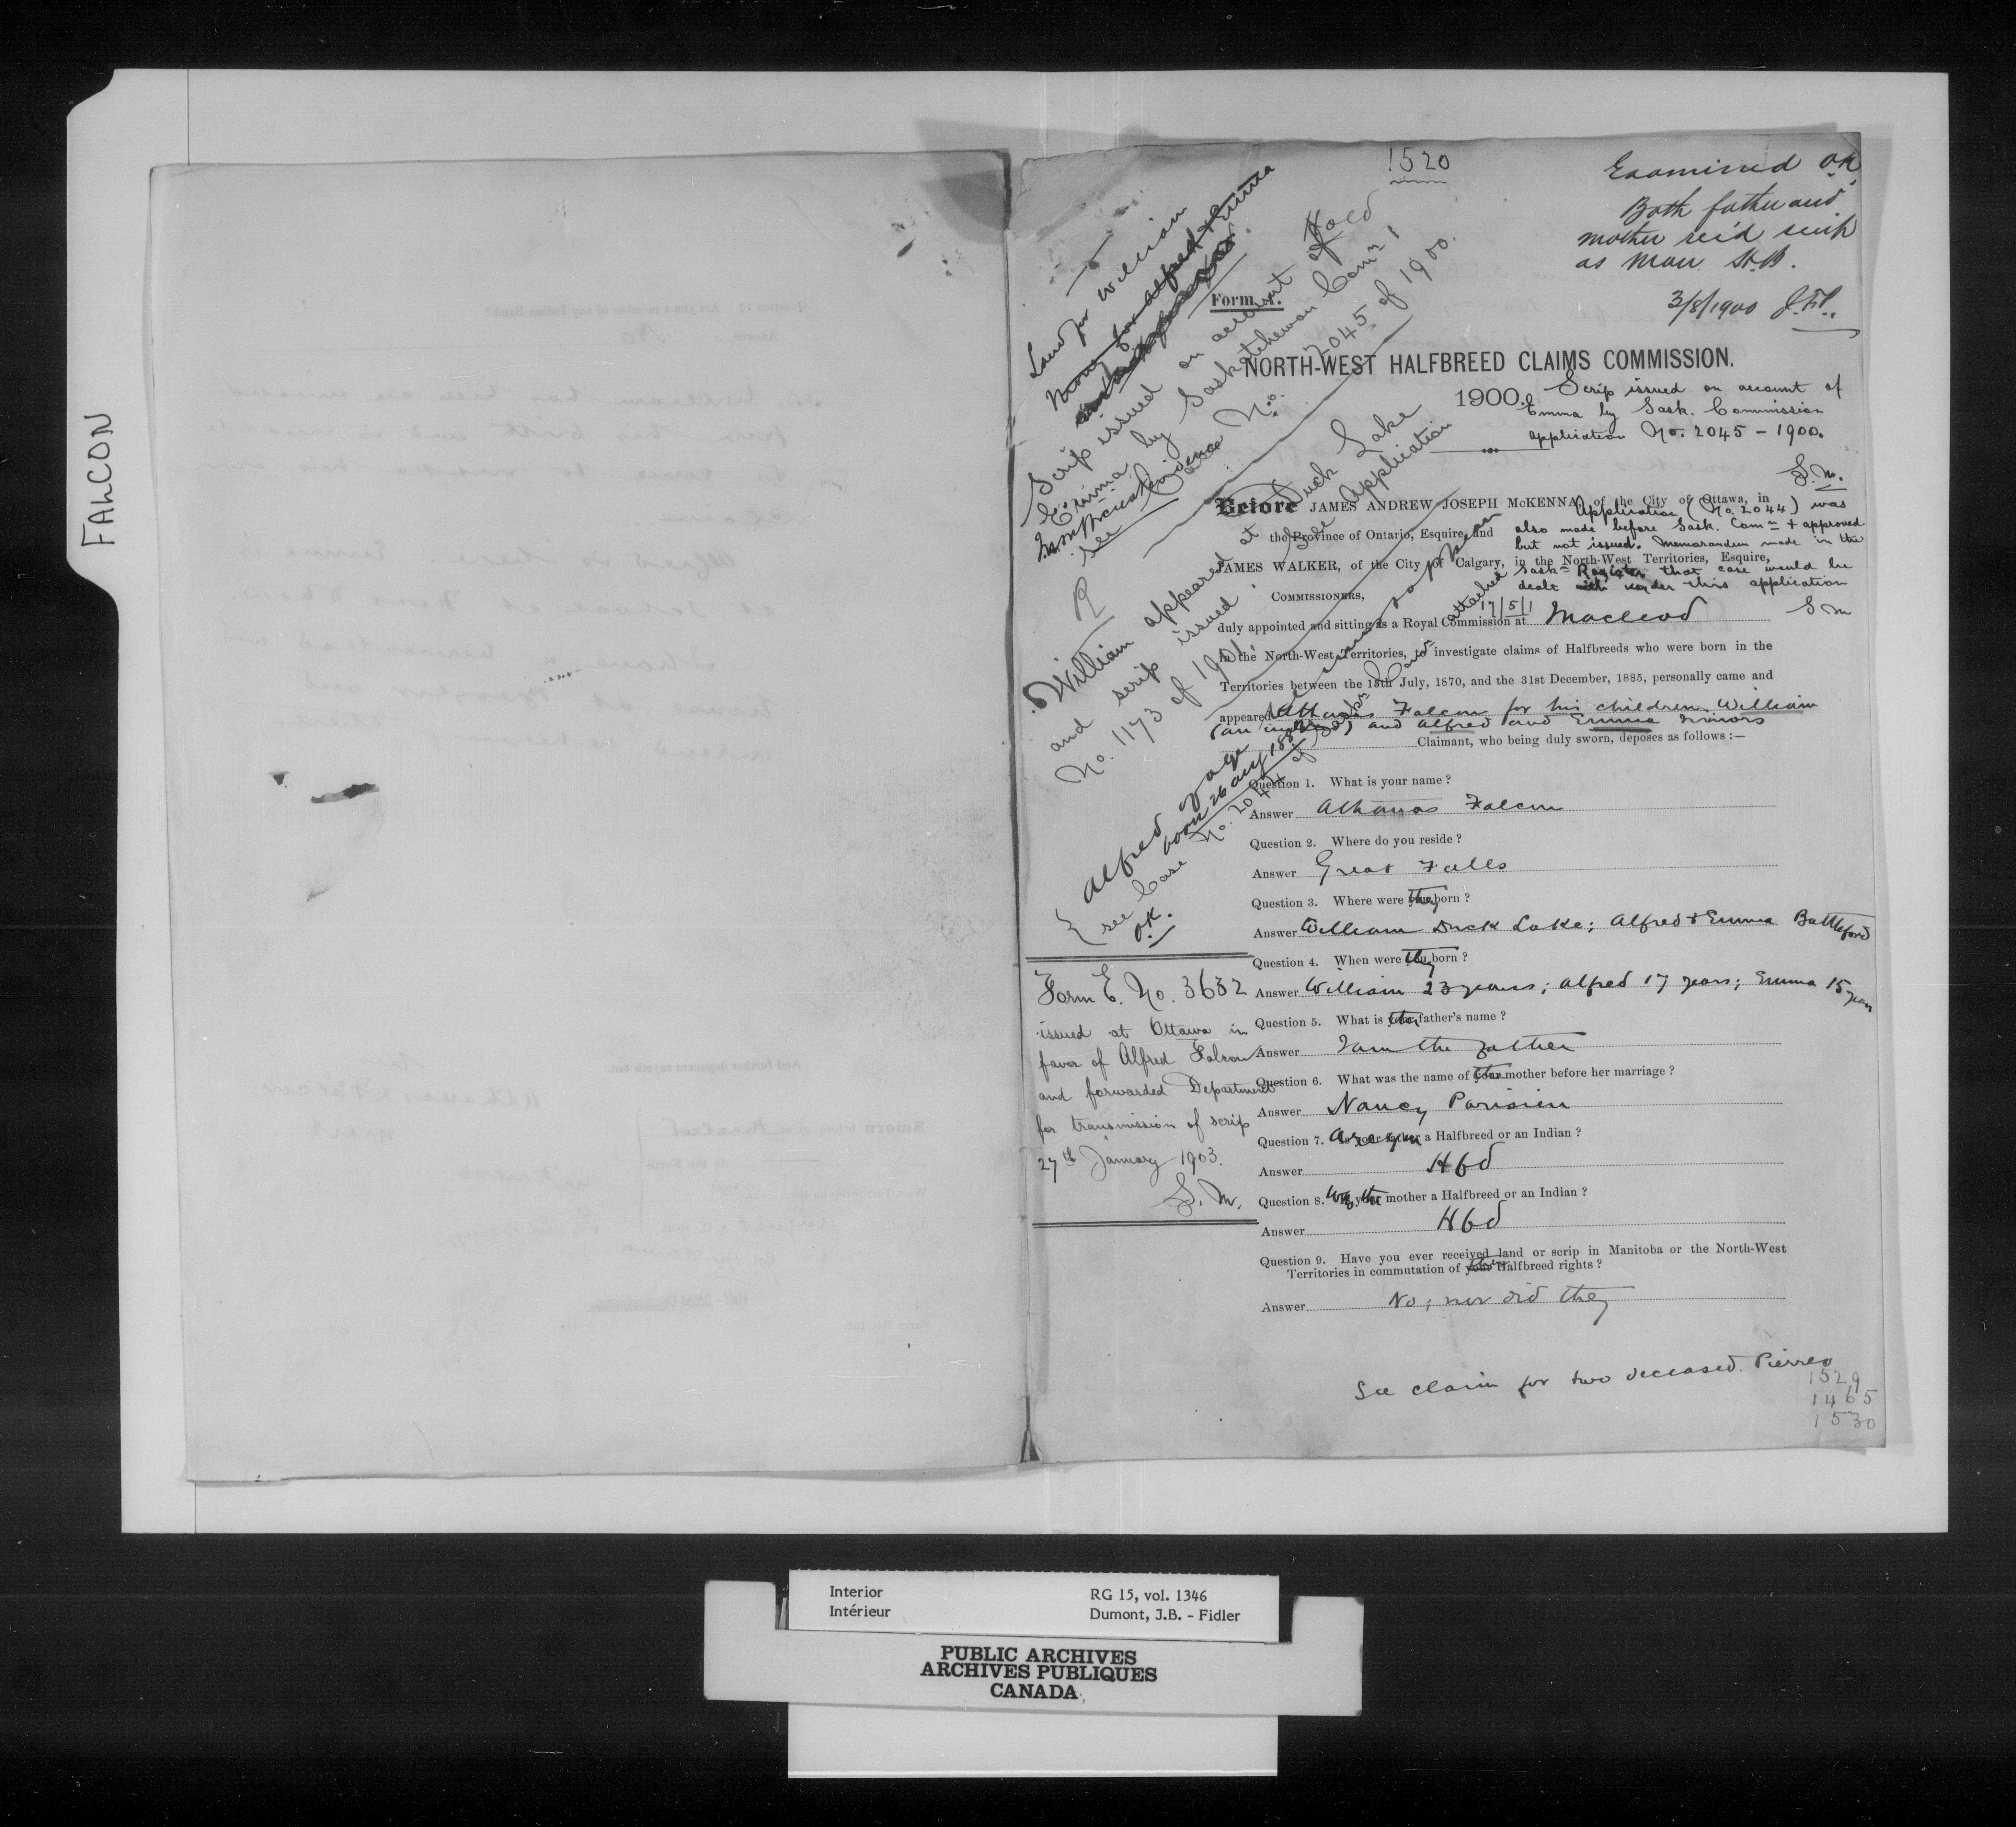 FALCON
1520
Examined O.K.
Both father and
mother rec'd scrip
as Man. H.B.
3/8/1900 J.F.
Land for William
Money for Alfred & Emma
Form
NORTH-WEST HALFBREED CLAIMS COMMISSION.
1900.
Scrip issued on account of
Emma by Sask. Commission
application No. 2045 - 1900.
S.M.
Hold
Scrip issued on account of
Emma by Saskatchewan Comn
see Case No. 2045 of 1900.
William appeared at Duck Lake
and scrip issued. See Application
No. 1173 of 1901.
Alfred of age
born 26 Aug 188
see Case No. 2044 of Sask Comn attached
O.K.
Before JAMES ANDREW JOSEPH McKENNA, of the City of Ottawa, in
the Province of Ontario, Esquire, and
JAMES WALKER, of the City of Calgary, in the North-West Territories, Esquire,
COMMISSIONERS,
Application (No. 2044) was
also made before Sask. Comn + approved
but not issued. Memorandum made in the
Sask Register that case would be
dealt with under this application
17/5/1
S M
duly appointed and sitting as a Royal Commission at Macleod
in the North-West Territories, to investigate claims of Halfbreeds who were born in the
Territories between the 15th July, 1870, and the 31st December, 1885, personally came and
appeared Athanas Falcon for his children William
and Alfred and Emma minors
Claimant, who being duly sworn, deposes as follows :—
Question 1. What is your name ?
Answer Athanas Falcon
Question 2. Where do you reside ?
Answer Great Falls
Question 3. Where were they born ?
Answer William Duck Lake; Alfred & Emma Battleford
Question 4. When were they born ?
Answer William 23 years; Alfred 17 years; Emma 15 years
Question 5. What is their father's name ?
Answer I am the father
Question 6. What was the name of their mother before her marriage ?
Answer Nancy Parisien
Question 7. Are you a Halfbreed or an Indian ?
Answer Hbd
Question 8. Was the mother a Halfbreed or an Indian ?
Answer Hbd
Question 9. Have you ever received land or scrip in Manitoba or the North-West
Territories in commutation of your Halfbreed rights ?
Answer No; nor did they
Form E. No. 3632
issued at Ottawa in
favor of Alfred Falcon
and forwarded Department
for transmission of scrip
27th January 1903.
S. M.
See claim for two deceased. Pierre
1529
1465
1530
Interior
Intérieur
RG 15, vol. 1346
Dumont, J.B. - Fidler
PUBLIC ARCHIVES
ARCHIVES PUBLIQUES
CANADA